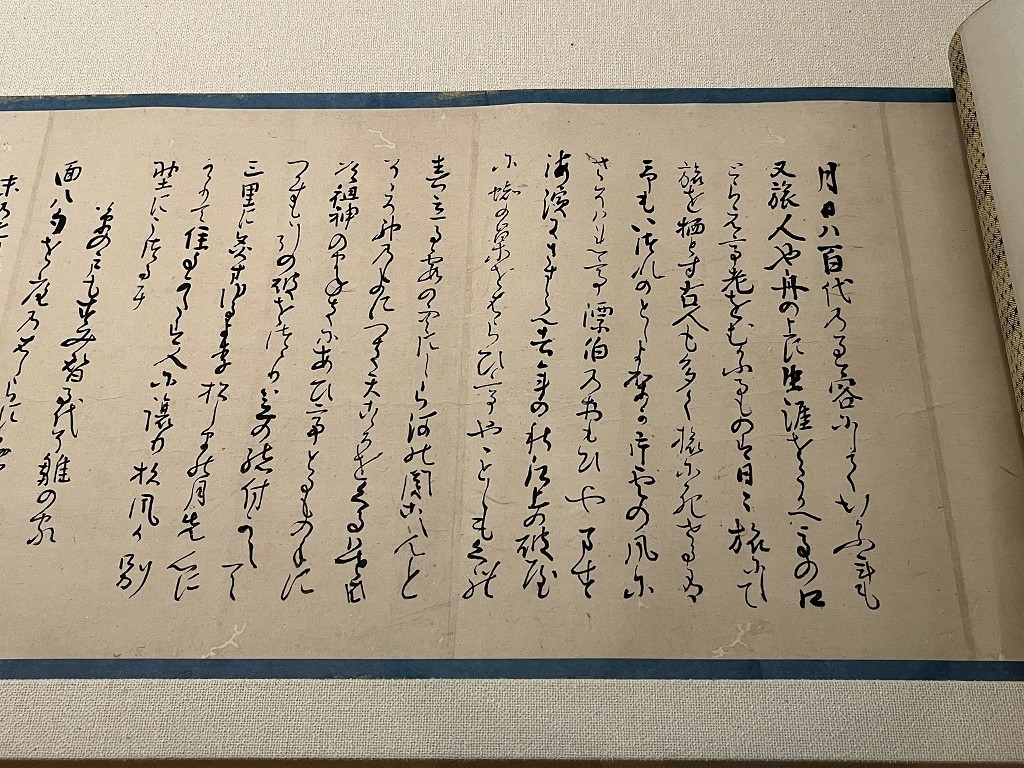 月日ハ百代の過客にして行かふ年も
又旅人也舟の上に生涯をうかへ馬の口
とらえて老をむかふるものは日々旅にして
旅を栖とす古人も多く旅に死せるあり
予もいつれのとしよりか片雲の風に
さそハれて漂泊のおもひやます
海濱にさすらへ去年の秋江上の破屋
に蜘の巣をはらひてやゝとしも暮
春立る霞の空にしら河の関こえんと
そゝろ神のものにつきて心をくるはせ
道祖神のまねきにあひてとるもの手に
つかすもゝ引の破をつゝり笠の緒付かえて
三里に灸すゆるより松しまの月先心に
かゝりて住る方は人に譲り杉風か別
墅にうつるに
草の戸も住み替る代そ雛の家
面八句を庵の柱に